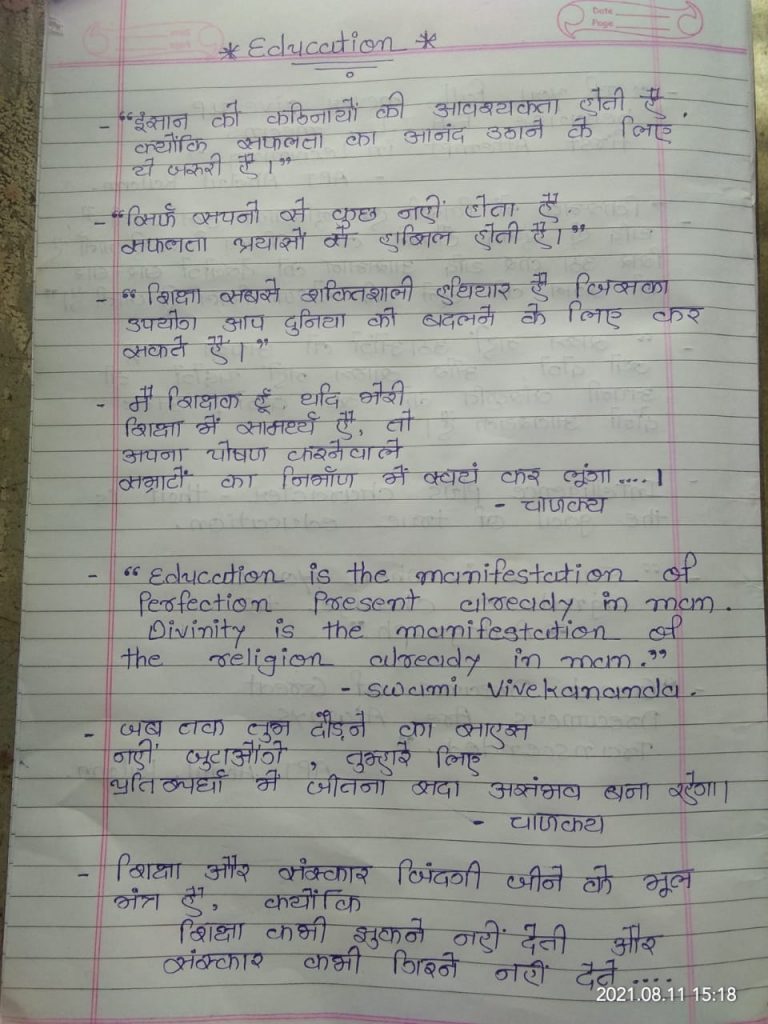 Date
Page
* Education *
- "इंसान को कठिनायों की आवश्यकता होती है,
क्योंकि सफलता का आनंद उठाने के लिए
ये जरुरी है।"
- "सिर्फ सपनो से कुछ नहीं होता है,
सफलता प्रयासों से हासिल होती है।"
- "शिक्षा सबसे शक्तिशाली हथियार है जिसका
उपयोग आप दुनिया को बदलने के लिए कर
सकते है।"
- मैं शिक्षक हूँ, यदि मेरी
शिक्षा में सामर्थ्य है, तो
अपना पोषण करनेवाले
सम्राटों का निर्माण में स्वयं कर लूंगा....।
- चाणक्य
- "Education is the manifestation of
Perfection Present already in man.
Divinity is the manifestation of
the religion already in man."
- Swami Vivekananda.
- जब तक तुम दौड़ने का साहस
नहीं जुटाओंगे, तुम्हारे लिए
प्रतिस्पर्धा में जीतना सदा असंभव बना रहेगा।
- चाणक्य
- शिक्षा और संस्कार जिंदगी जीने के मूल
मंत्र है, क्योंकि
शिक्षा कभी झुकने नहीं देती और
संस्कार कभी गिरने नहीं देते....
2021.08.11 15:18